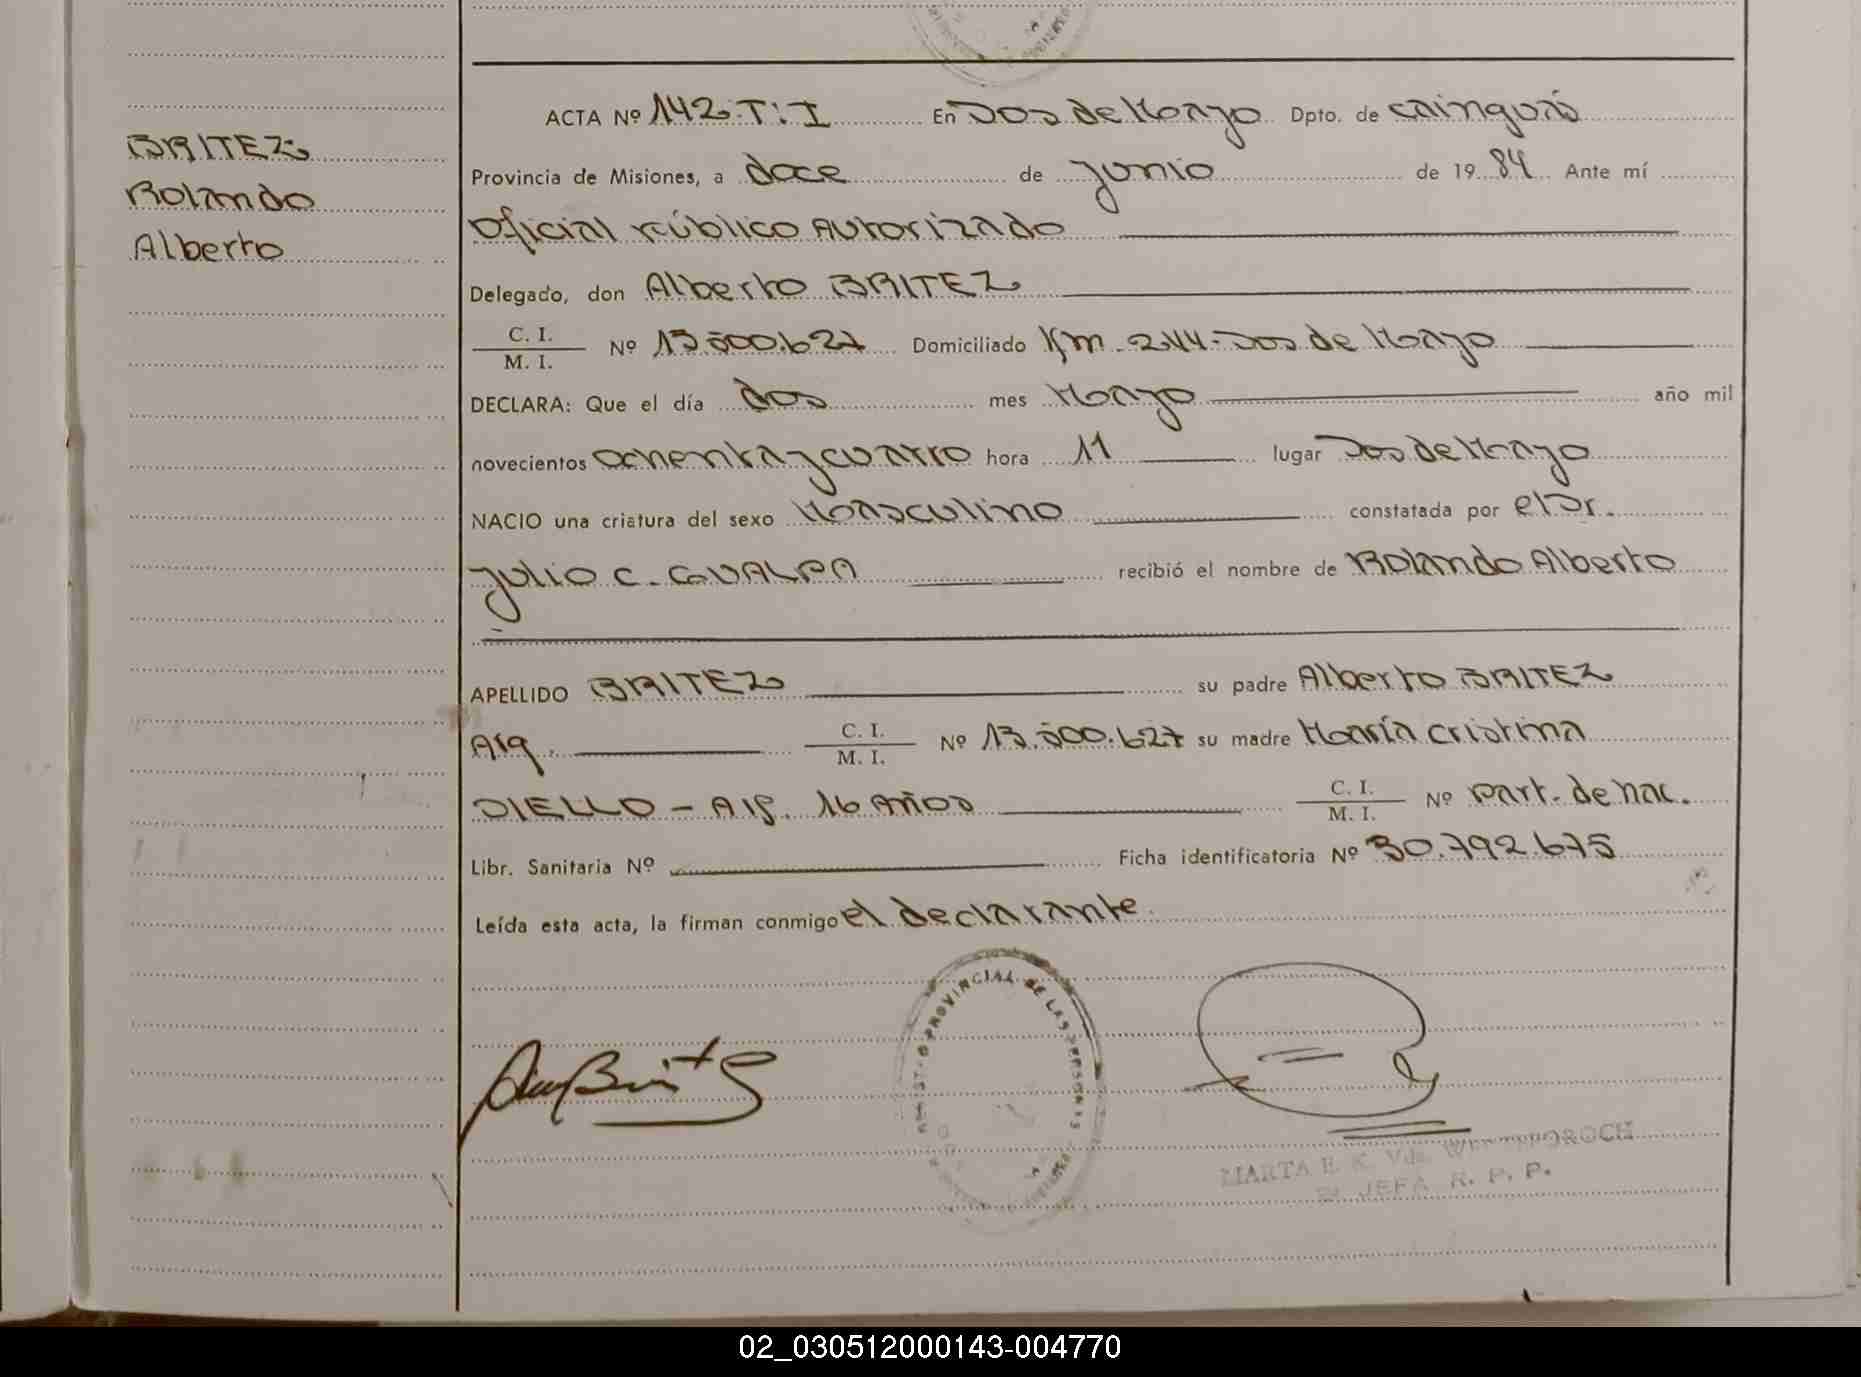 BRITEZ
Rolando
Alberto
ACTA Nº 142-T:I En Dos de Mayo Dpto. de Cainguás
Provincia de Misiones, a doce de junio de 1984 Ante mí
Oficial Público Autorizado
Delegado, don Alberto BRITEZ
C. I.
M. I. Nº 13.500.627 Domiciliado Km. 244-Dos de Mayo
DECLARA: Que el día dos mes Mayo año mil
novecientos ochenta y cuatro hora 11 lugar Dos de Mayo
NACIO una criatura del sexo Masculino constatada por el Dr.
Julio C. GUALPA recibió el nombre de Rolando Alberto
APELLIDO BRITEZ su padre Alberto BRITEZ
Arg. C. I. M. I. Nº 13.500.627 su madre María Cristina
DIELLO - Arg. 16 Años C. I. M. I. Nº Part. de nac.
Libr. Sanitaria Nº Ficha identificatoria Nº 30.792.675
Leída esta acta, la firman conmigo el declarante.
PROVINCIAL DE LAS PERSONAS
MARTA E. K. Vda.
JEFA R. P. P.
02_030512000143-004770